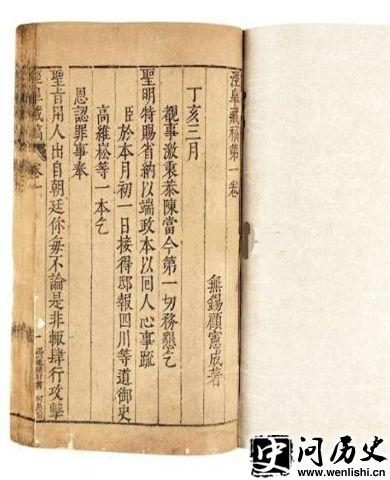 涇皋藏稿第一卷
無錫顧憲成著
丁亥三月
覩事激衷恭陳當今第一切務懇乞
聖明特賜省納以端政本以回人心事疏
臣於本月初一日接得邸報四川等道御史
高維崧等一本乞
恩認罪事奉
聖旨用人出自朝廷你每不論是非輒肆行攻擊
涇皋藏稿
卷一
一
问历史
www.wenlishi.cn